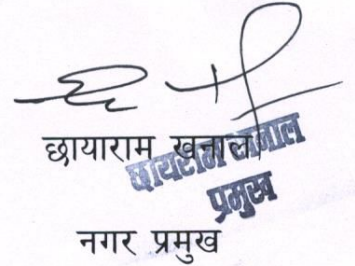 छायाराम खनाल
छायाराम खनाल
प्रमुख
नगर प्रमुख